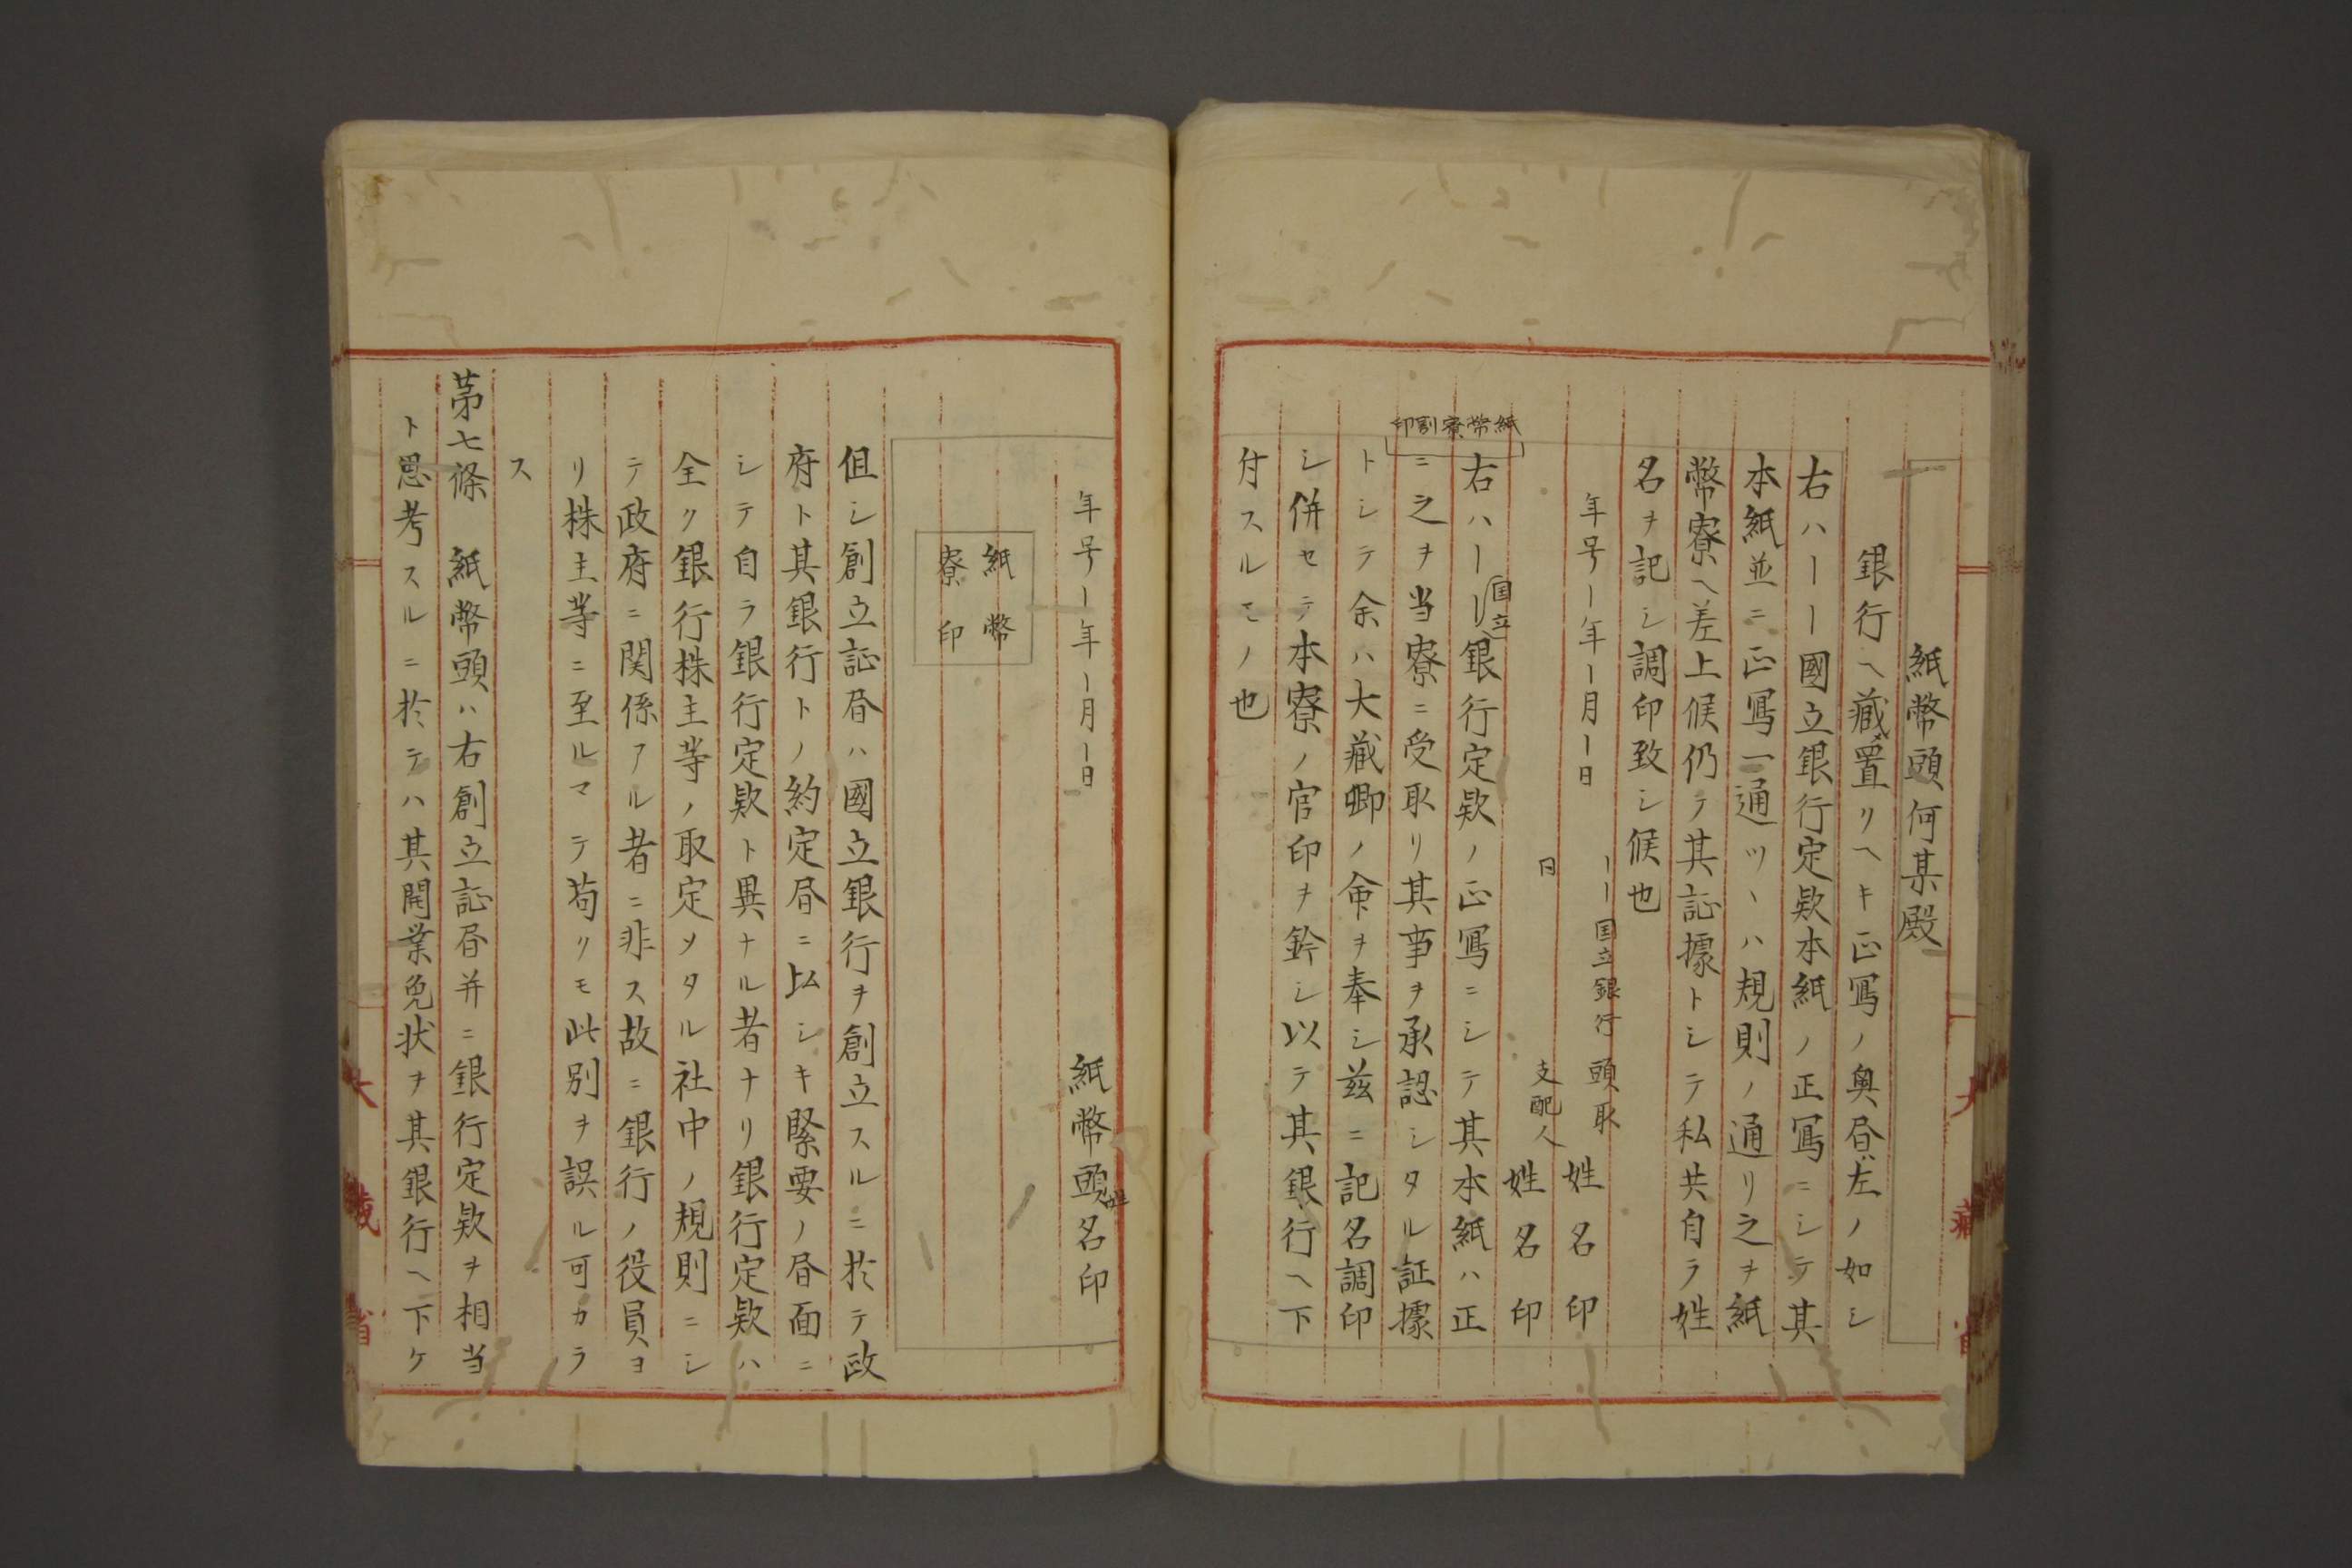 紙幣頭何某殿
銀行ヘ藏置リヘキ正寫ノ奥書左ノ如シ
右ハーー國立銀行定欵本紙ノ正寫ニシテ其
本紙並ニ正寫一通ツヽハ規則ノ通リ之ヲ紙
幣寮ヘ差上候仍テ其証據トシテ私共自ラ姓
名ヲ記シ調印致シ候也
年号ー年ー月ー日
ーー国立銀行頭取
姓名印
日
支配人
姓名印
紙幣寮割印
右ハーー国立銀行定欵ノ正寫ニシテ其本紙ハ正
ニ之ヲ当寮ニ受取リ其事ヲ承認シタル証據
トシテ余ハ大藏卿ノ命ヲ奉シ茲ニ記名調印
シ併セテ本寮ノ官印ヲ鈐シ以テ其銀行ヘ下
付スルモノ也
大藏省
年号ー年ー月ー日
紙幣頭姓名印
紙幣
寮印
但シ創立証書ハ國立銀行ヲ創立スルニ於テ政
府ト其銀行トノ約定書ニ㕥シキ緊要ノ書面ニ
シテ自ラ銀行定欵ト異ナル者ナリ銀行定欵ハ
全ク銀行株主等ノ取定メタル社中ノ規則ニシ
テ政府ニ関係アル者ニ非ス故ニ銀行ノ役員ヨ
リ株主等ニ至ルマテ苟リモ此別ヲ誤ル可カラ
ス
苐七條 紙幣頭ハ右創立証書并ニ銀行定欵ヲ相当
ト思考スルニ於テハ其開業免状ヲ其銀行ヘ下ケ
大藏省